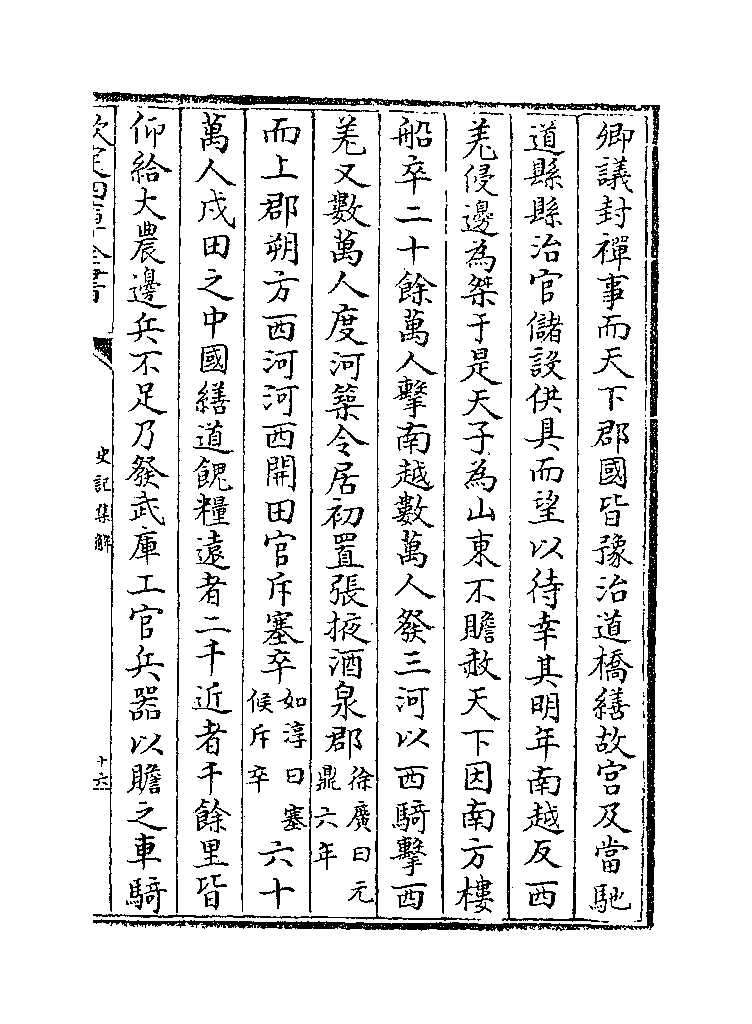 卿議封禪事而天下郡國皆豫治道橋繕故宮及當馳
道縣縣治官儲設供具而望以待幸其明年南越反西
羌侵邊為桀于是天子為山東不贍赦天下因南方樓
船卒二十餘萬人擊南越數萬人發三河以西騎擊西
羌又數萬人度河築令居初置張掖酒泉郡徐廣曰元鼎六年
而上郡朔方西河河西開田官斥塞卒如淳曰塞候斥卒六十
萬人戍田之中國繕道餽糧遠者二千近者千餘里皆
仰給大農邊兵不足乃發武庫工官兵器以贍之車騎
欽定四庫全書
史記集解
十六